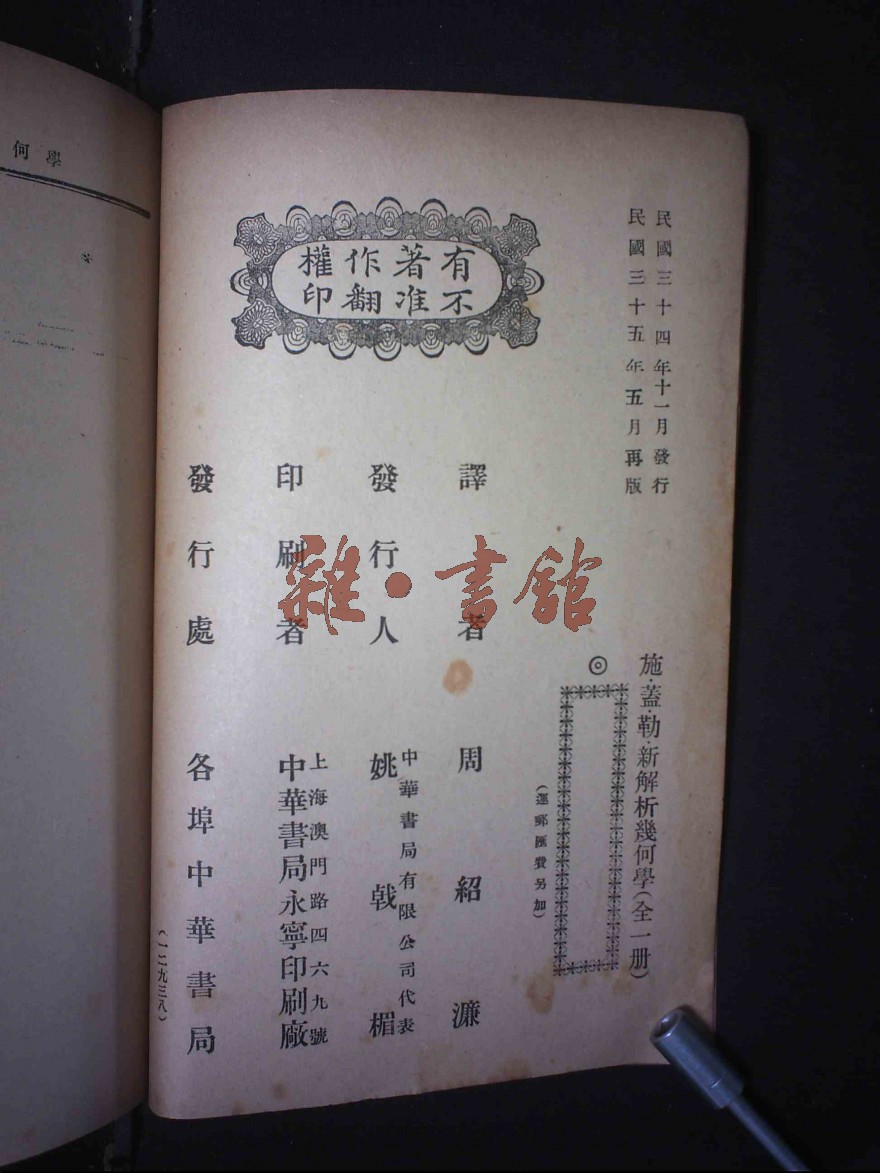 民國三十四年十一月發行
民國三十五年五月再版
施·蓋·勒·新解析幾何學(全一册)
◎
(運郵匯費另加)
有著作權
不准翻印
譯者 周紹濂
中華書局有限公司代表
發行人 姚戟楣
上海澳門路四六九號
印刷者 中華書局永寧印刷廠
發行處 各埠中華書局
(一二九三八)
雜·書館
何學